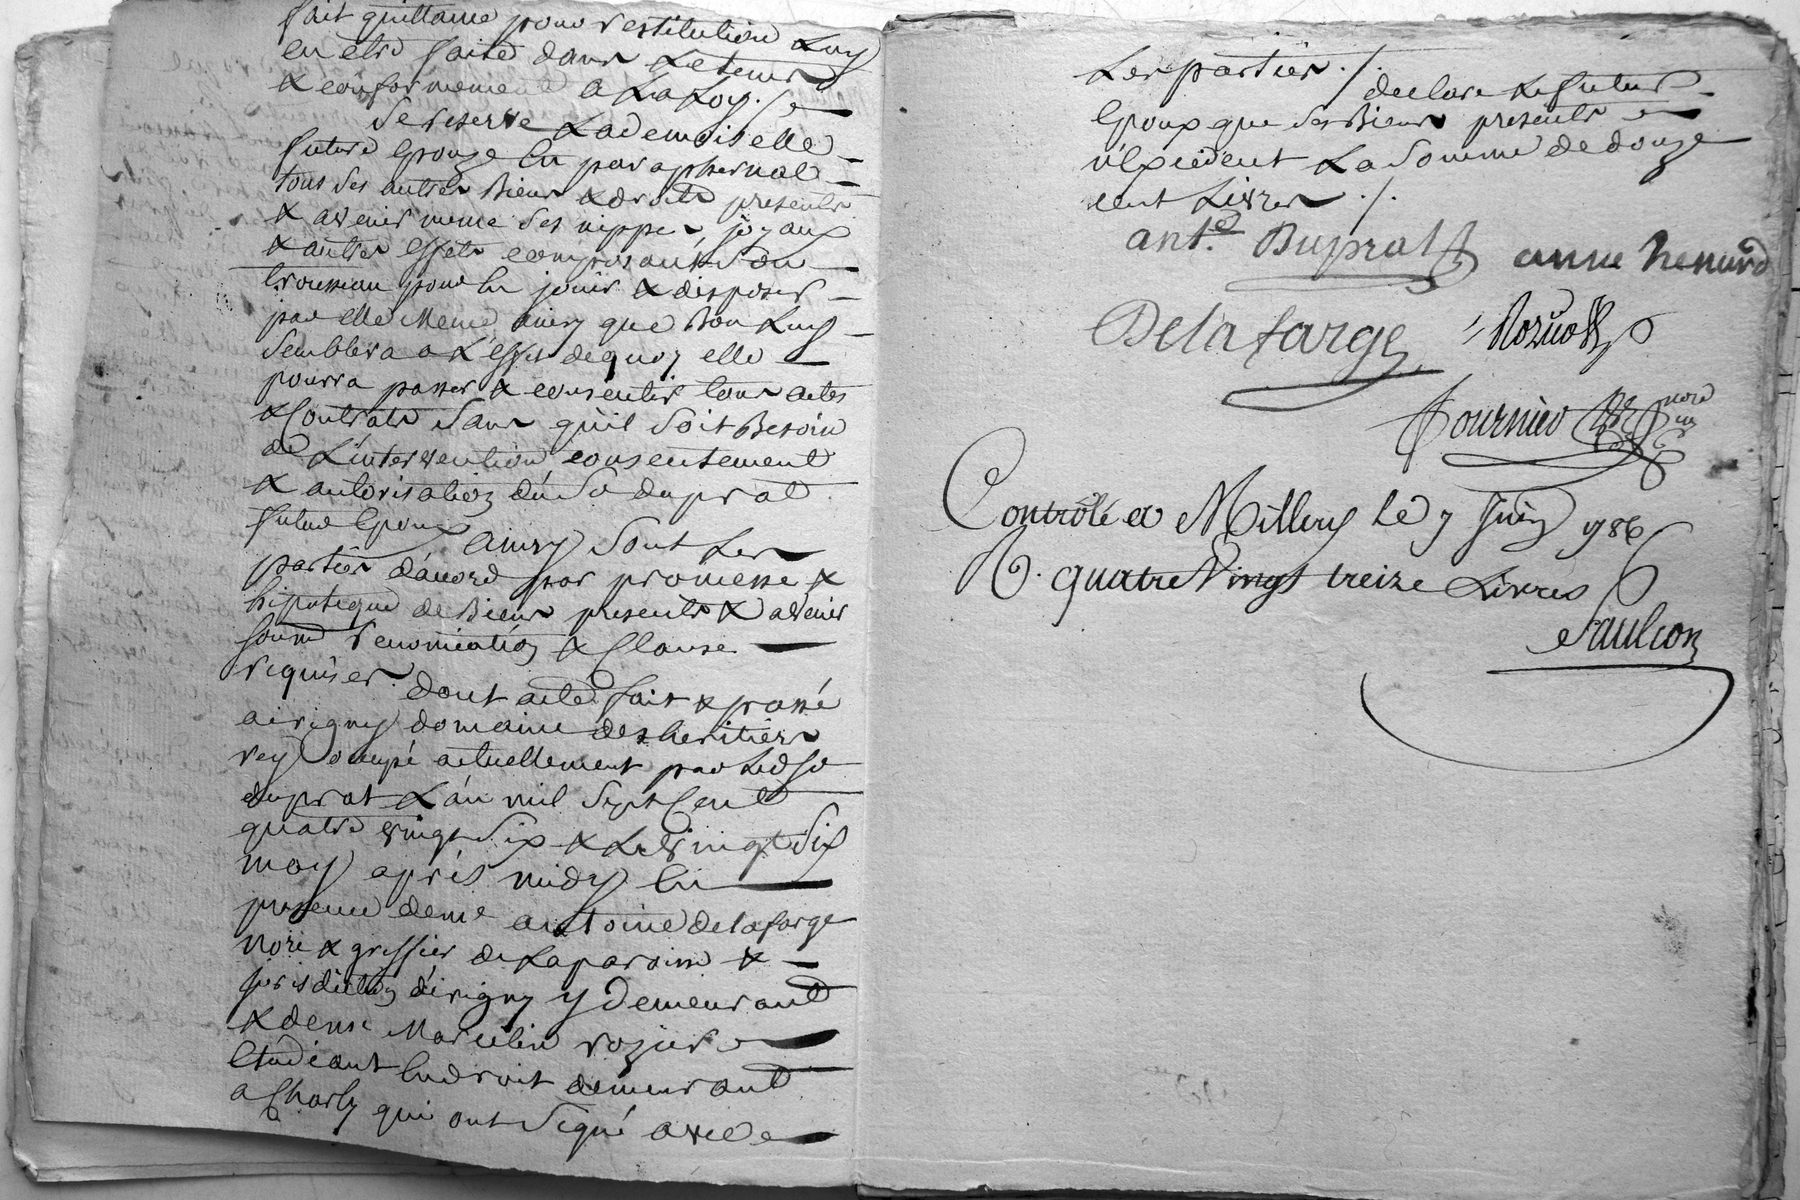 fait quittance pour restitution Luy
en etre faite dans Le tems
& conformement a La Loy ./.
Se reserve La demoiselle
future Epouze En paraphernal
tous ses autres Biens & droits presents
& avenir meme ses nippes, joyaux
& autres effets composant son
trousseau pour En jouir & disposer
par elle Meme ainsy que Bon Luy
Semblera a L'effet de quoy elle
pourra passer & consentir tous actes
& Contrats Sans qu'il soit Besoin
de L'intervention consentement
& autorisation du Sr duprat
futur Epoux ainsy Sont Les
parties d'acord par promesse &
hipoteque de Biens presents & avenir
soumn renonciation & Clause
requises. dont acte fait & passé
a irigny domaine des heritiers
rey ocupé actuellement par Led Sr
duprat L'an mil Sept Cent
quatre vingt Six & Le vingt Six
may après midy En
presence de me antoine delafarge
nore & greffier de La paroisse &
jurisdiction d'irigny y demeurant
& de mr Marcelin rozier
Etudiant En droit demeurant
a Charly qui ont Signé avec
Les parties ./.
declare Le futur
Epoux que ses Biens presents
n'Excedent La Somme de douze
cent Livres ./.
ante Duprat anne henard
Delafarge
fournier nore
Controlé a Millery Le 7 Juin 1786
R. quatre Vingt treize Livres
Faulcon